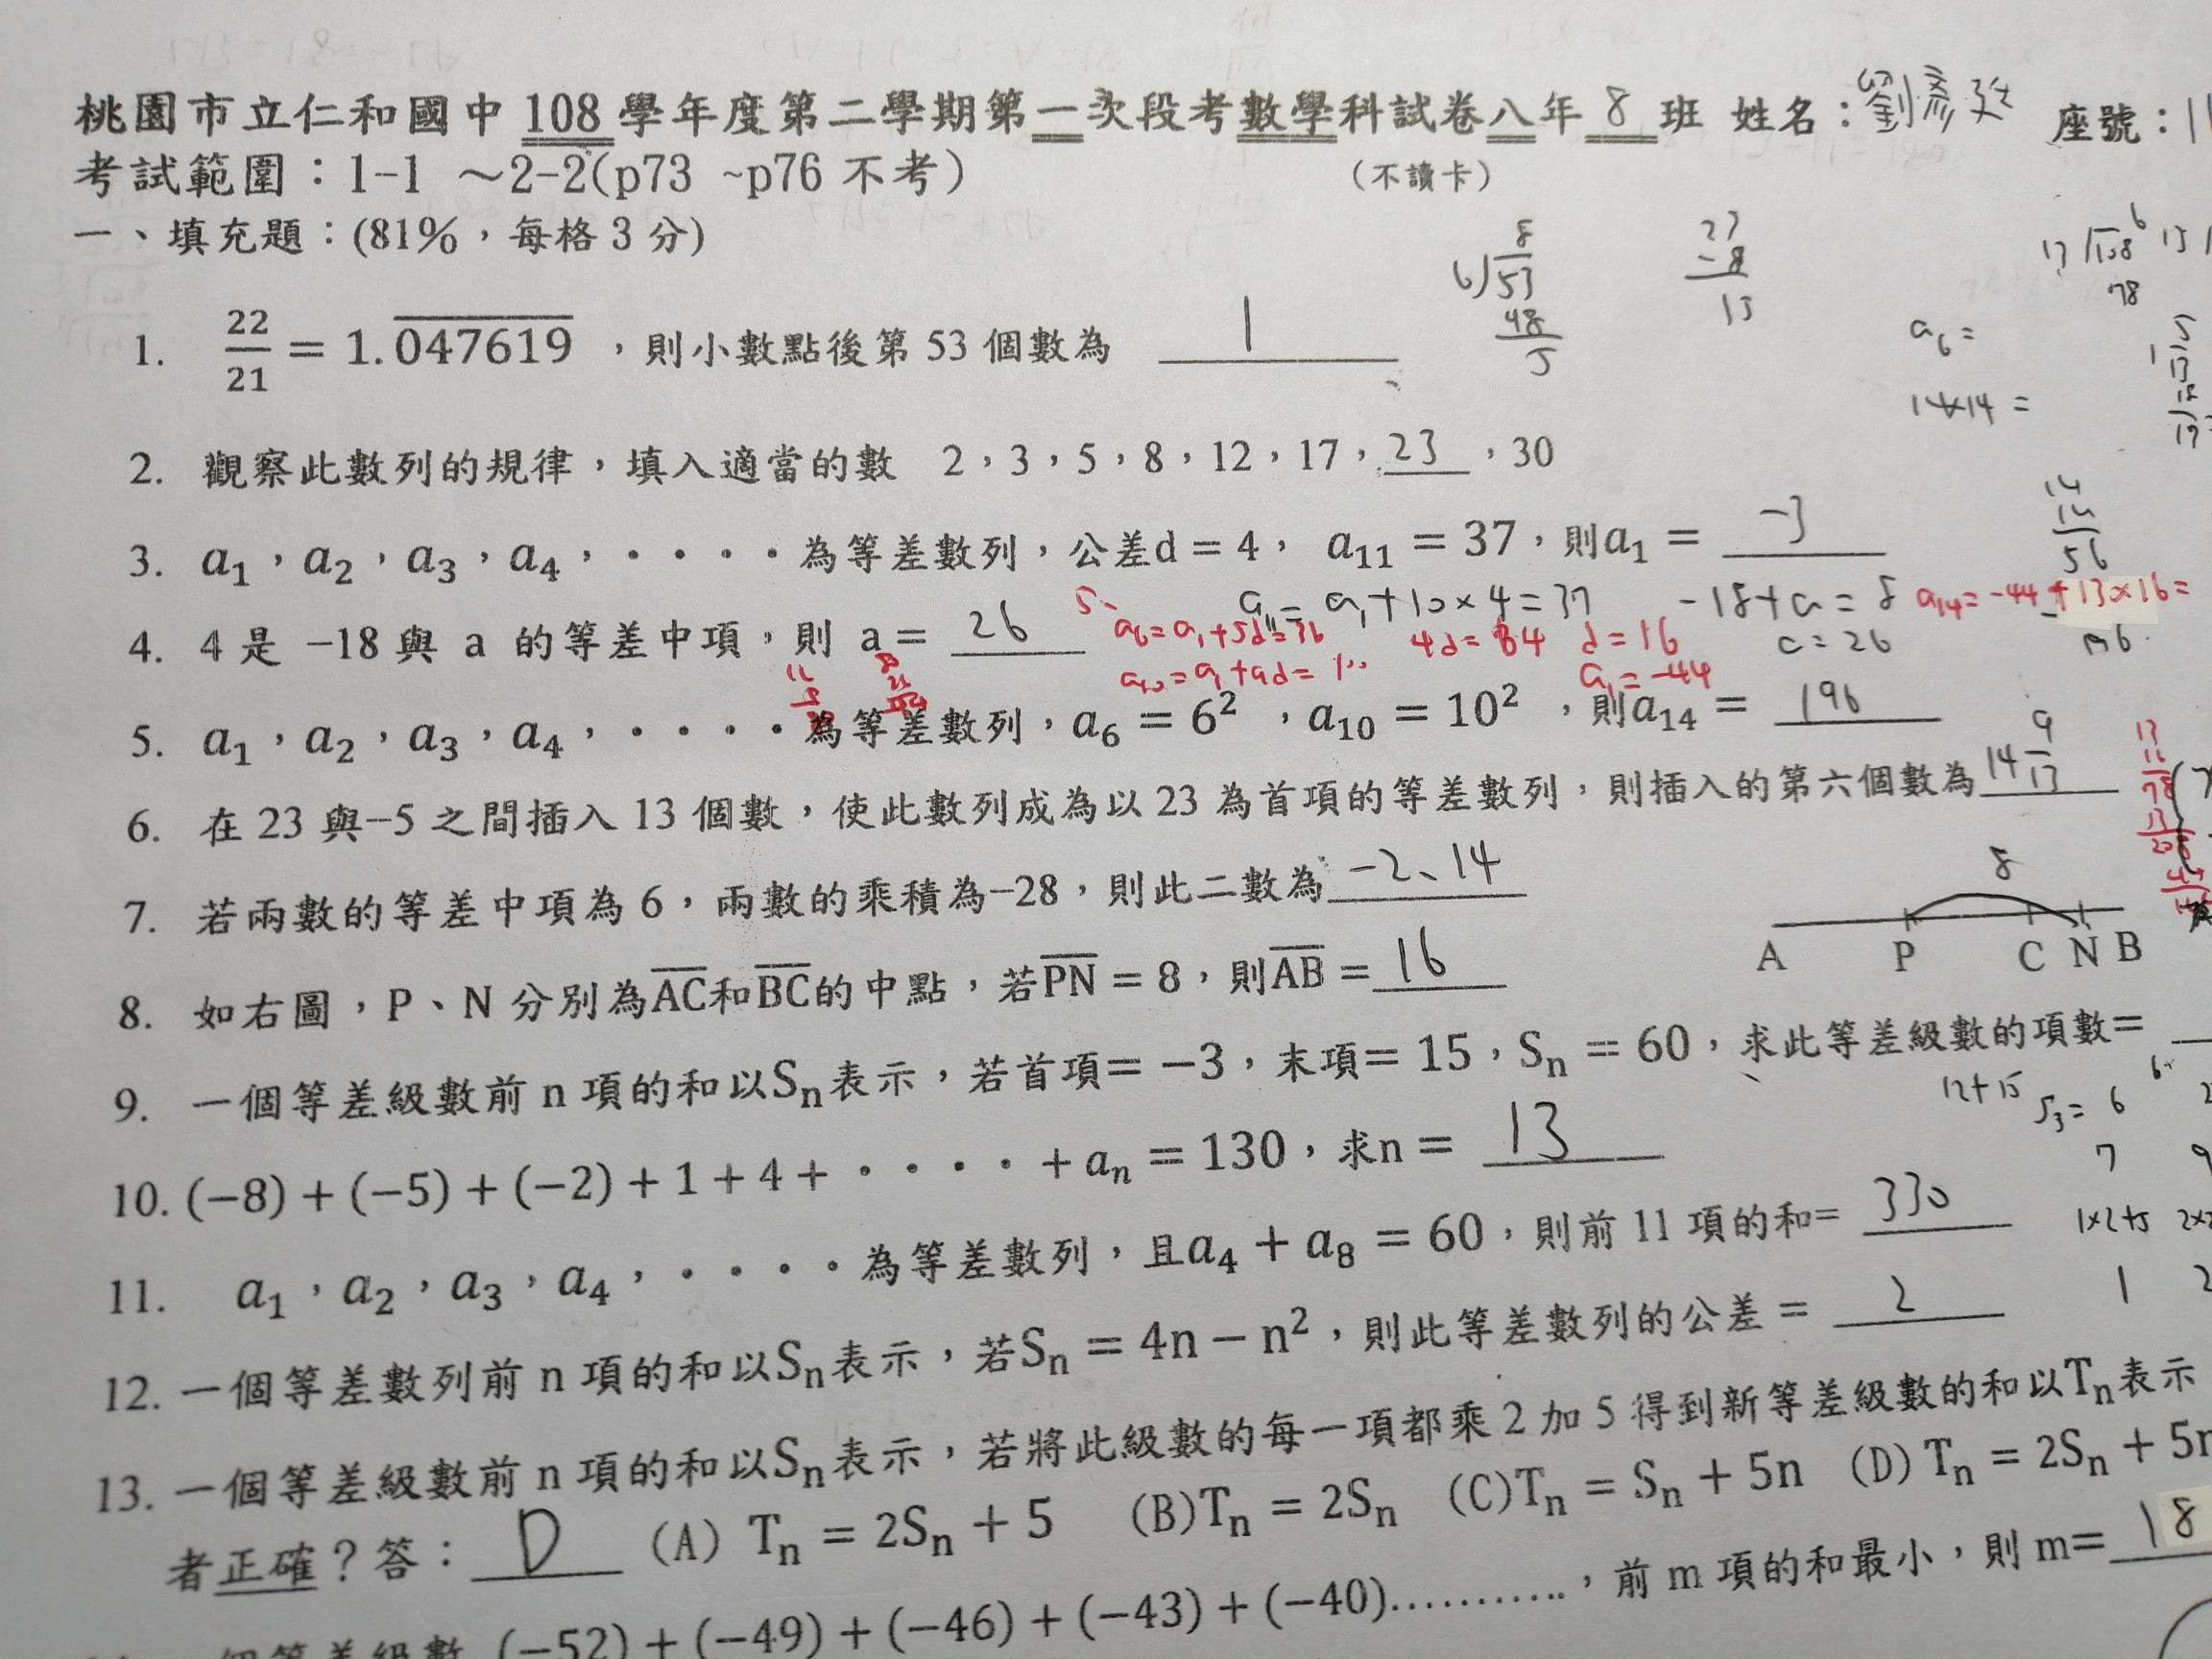 桃園市立仁和國中 108 學年度第二學期第一次段考數學科試卷八年 8 班 姓名：劉彥 座號：11
考試範圍：1-1 ～2-2(p73 ~p76 不考) (不讀卡)
一、填充題：(81%，每格 3 分)
8
6)53
48
5
27
-8
13
a₆ =
14×14 =
1. 22/21 = 1.047619，則小數點後第 53 個數為 1
2. 觀察此數列的規律，填入適當的數 2，3，5，8，12，17，23，30
3. a₁，a₂，a₃，a₄，····為等差數列，公差d = 4， a₁₁ = 37，則a₁ = -3
a₁₁ = a₁+10×4=37
14
14
56
4. 4 是 −18 與 a 的等差中項，則 a = 26
-18+a = 8
a = 26
a₆=a₁+5d=36
a₁₀=a₁+9d=100
4d=64 d=16
a₁=-44
a₁₄=-44+13×16=
5. a₁，a₂，a₃，a₄，····為等差數列，a₆ = 6²，a₁₀ = 10²，則a₁₄ = 196
6. 在 23 與−5 之間插入 13 個數，使此數列成為以 23 為首項的等差數列，則插入的第六個數為 14 9/13
7. 若兩數的等差中項為 6，兩數的乘積為−28，則此二數為 -2、14
8
A P C N B
8. 如右圖，P、N 分別為AC和BC的中點，若PN = 8，則AB = 16
9. 一個等差級數前 n 項的和以Sₙ表示，若首項= −3，末項= 15，Sₙ = 60，求此等差級數的項數=
12+15 S₃= 6
10. (−8) + (−5) + (−2) + 1 + 4 + ···· + aₙ = 130，求n = 13
7 9
1×2+5
11. a₁，a₂，a₃，a₄，····為等差數列，且a₄ + a₈ = 60，則前 11 項的和= 330
1 2
12. 一個等差數列前 n 項的和以Sₙ表示，若Sₙ = 4n − n²，則此等差數列的公差 = 2
13. 一個等差級數前 n 項的和以Sₙ表示，若將此級數的每一項都乘 2 加 5 得到新等差級數的和以Tₙ表示
者正確？答： D (A) Tₙ = 2Sₙ + 5 (B)Tₙ = 2Sₙ (C)Tₙ = Sₙ + 5n (D) Tₙ = 2Sₙ + 5n
個等差級數 (−52) + (−49) + (−46) + (−43) + (−40)...........，前 m 項的和最小，則 m= 18